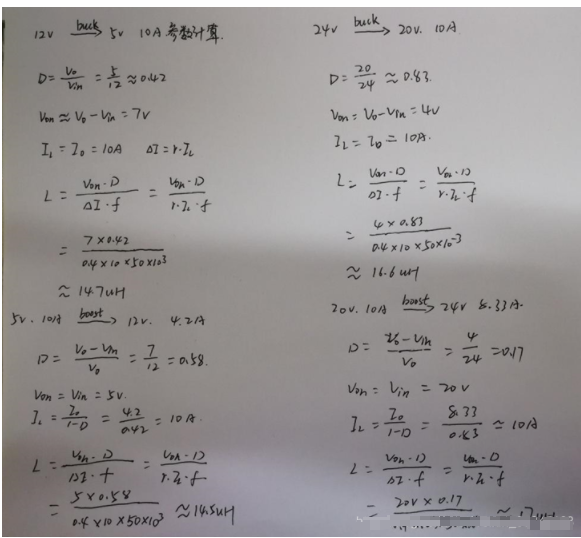 12V buck→ 5V 10A 参数计算.
D = Vo/Vin = 5/12 ≈ 0.42
Von ≈ Vo - Vin = 7V
IL = Io = 10A ΔI = r·IL
L = Von·D / ΔI·f = Von·D / r·IL·f
= 7×0.42 / 0.4×10×50×10³
≈ 14.7uH
5V. 10A boost→ 12V. 4.2A
D = Vo-Vin / Vo = 7/12 = 0.58.
Von = Vin = 5V.
IL = Io/1-D = 4.2/0.42 = 10A.
L = Von·D / ΔI·f = Von·D / r·IL·f
= 5×0.58 / 0.4×10×50×10³ ≈ 14.5uH
24V buck→ 20V. 10A
D = 20/24 ≈ 0.83.
Von = Vo - Vin = 4V
IL = Io = 10A.
L = Von·D / ΔI·f = Von·D / r·IL·f
= 4×0.83 / 0.4×10×50×10⁻³
≈ 16.6uH
20V. 10A boost→ 24V 8.33A.
D = Vo-Vin / Vo = 4/24 = 0.17
Von = Vin = 20V
IL = Io/1-D = 8.33/0.83 ≈ 10A
L = Von·D / ΔI·f = Von·D / r·IL·f
= 20V×0.17 / ≈ 17uH